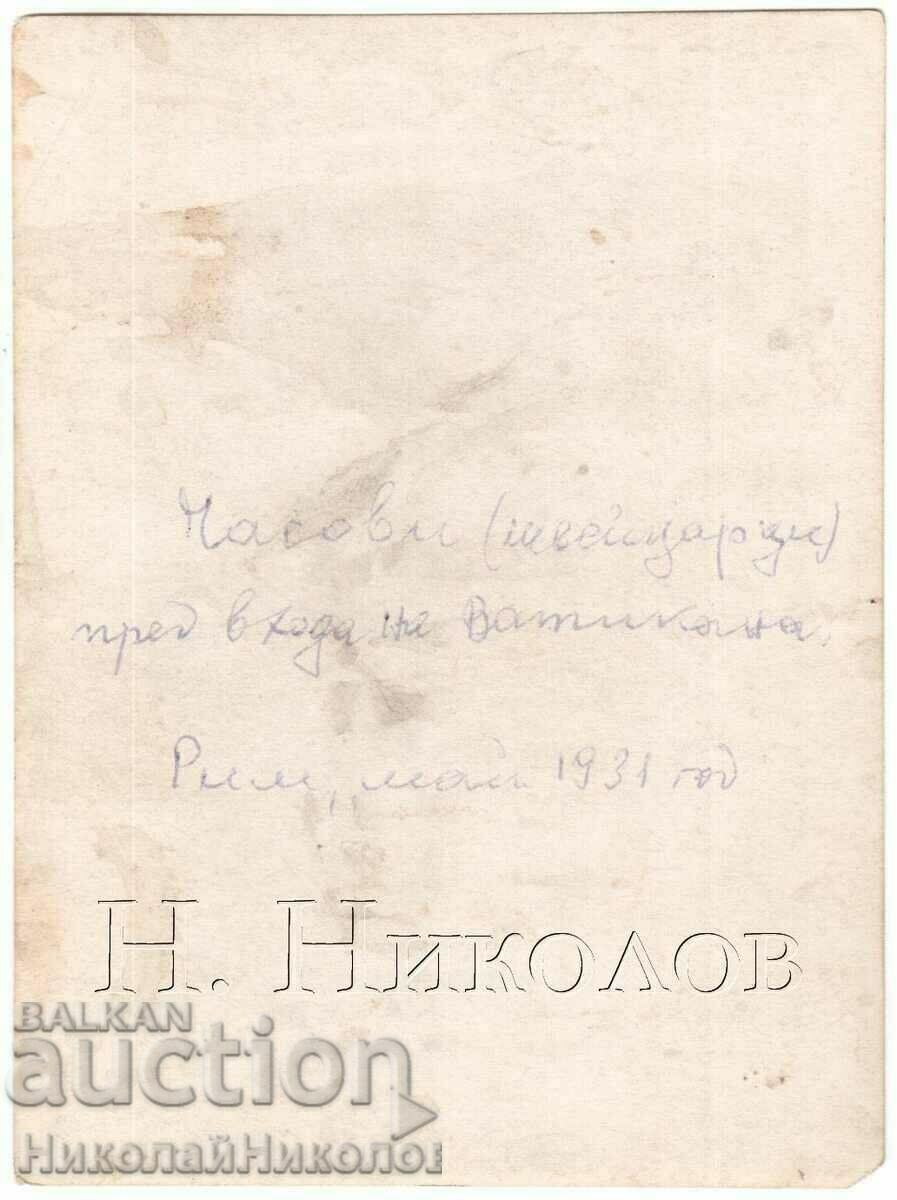 Часови (швейцарци)
пред входа на Ватикана.
Рим, май 1931 год
Н. Николов
BALKAN
auction
НиколайНиколов